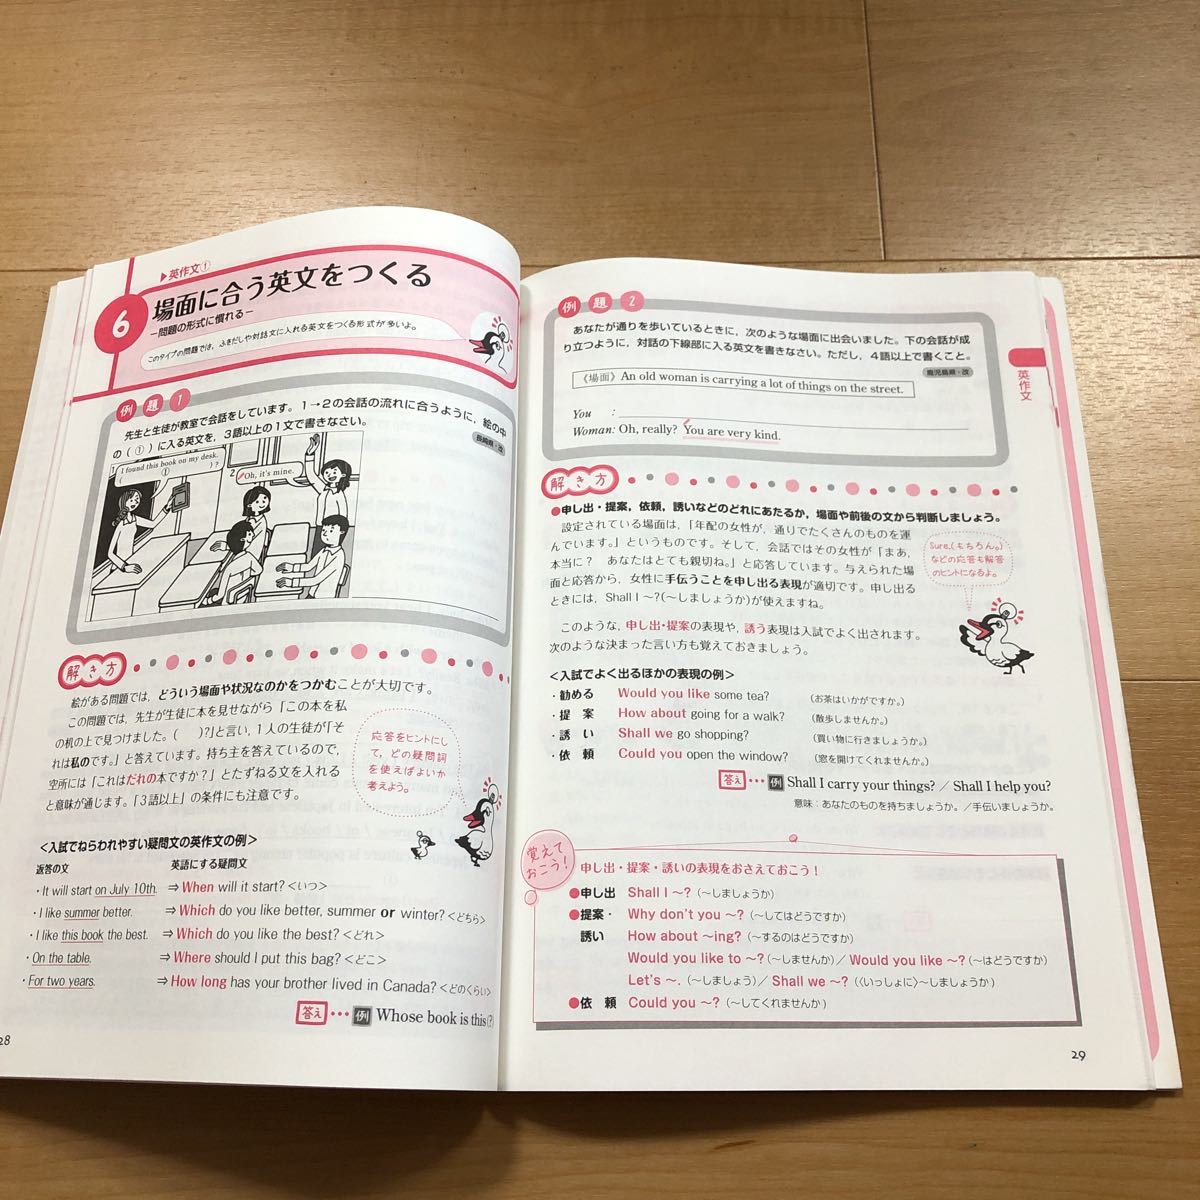 ▶英作文①
6 場面に合う英文をつくる
―問題の形式に慣れる―
このタイプの問題では、ふきだしや対話文に入れる英文をつくる形式が多いよ。
例題 1
先生と生徒が教室で会話をしています。1→2の会話の流れに合うように，絵の中
の（ ① ）に入る英文を，3語以上の1文で書きなさい。
長崎県・改
I found this book on my desk.
( ① )?
2
Oh, it's mine.
解き方
絵がある問題では，どういう場面や状況なのかをつかむことが大切です。
この問題では，先生が生徒に本を見せながら「この本を私
の机の上で見つけました。（　　）?」と言い，1人の生徒が「そ
れは私のです。」と答えています。持ち主を答えているので，
空所には「これはだれの本ですか？」とたずねる文を入れる
と意味が通じます。「3語以上」の条件にも注意です。
応答をヒントにし
て，どの疑問詞
を使えばよいか
考えよう。
＜入試でねらわれやすい疑問文の英作文の例＞
返答の文　英語にする疑問文
・It will start on July 10th. ⇒ When will it start?＜いつ＞
・I like summer better. ⇒ Which do you like better, summer or winter?＜どちら＞
・I like this book the best. ⇒ Which do you like the best?＜どれ＞
・On the table. ⇒ Where should I put this bag?＜どこ＞
・For two years. ⇒ How long has your brother lived in Canada?＜どのくらい＞
答え … 例 Whose book is this(?)
28
例題 2
あなたが通りを歩いているときに，次のような場面に出会いました。下の会話が成
り立つように，対話の下線部に入る英文を書きなさい。ただし，4語以上で書くこと。
鹿児島県・改
《場面》An old woman is carrying a lot of things on the street.
You :
Woman: Oh, really? You are very kind.
英作文
解き方
●申し出・提案，依頼，誘いなどのどれにあたるか，場面や前後の文から判断しましょう。
設定されている場面は，「年配の女性が，通りでたくさんのものを運
んでいます。」というものです。そして，会話ではその女性が「まあ，
本当に？　あなたはとても親切ね。」と応答しています。与えられた場
面と応答から，女性に手伝うことを申し出る表現が適切です。申し出る
ときには，Shall I ～?(～しましょうか)が使えますね。
Sure.(もちろん。)
などの応答も解答
のヒントになるよ。
このような，申し出・提案の表現や，誘う表現は入試でよく出されます。
次のような決まった言い方も覚えておきましょう。
＜入試でよく出るほかの表現の例＞
・勧める　Would you like some tea?　(お茶はいかがですか。)
・提　案　How about going for a walk?　(散歩しませんか。)
・誘　い　Shall we go shopping?　(買い物に行きましょうか。)
・依　頼　Could you open the window?　(窓を開けてくれませんか。)
答え … 例 Shall I carry your things? / Shall I help you?
意味：あなたのものを持ちましょうか。／手伝いましょうか。
覚えて
おこう！
申し出・提案・誘いの表現をおさえておこう！
●申し出　Shall I ～?（～しましょうか）
●提案・　Why don't you ～?（～してはどうですか）
誘い　How about ～ing?（～するのはどうですか）
Would you like to ～?（～しませんか）／ Would you like ～?（～はどうですか）
Let's ～.（～しましょう）／ Shall we ～?（〈いっしょに〉～しましょうか）
●依　頼　Could you ～?（～してくれませんか）
29